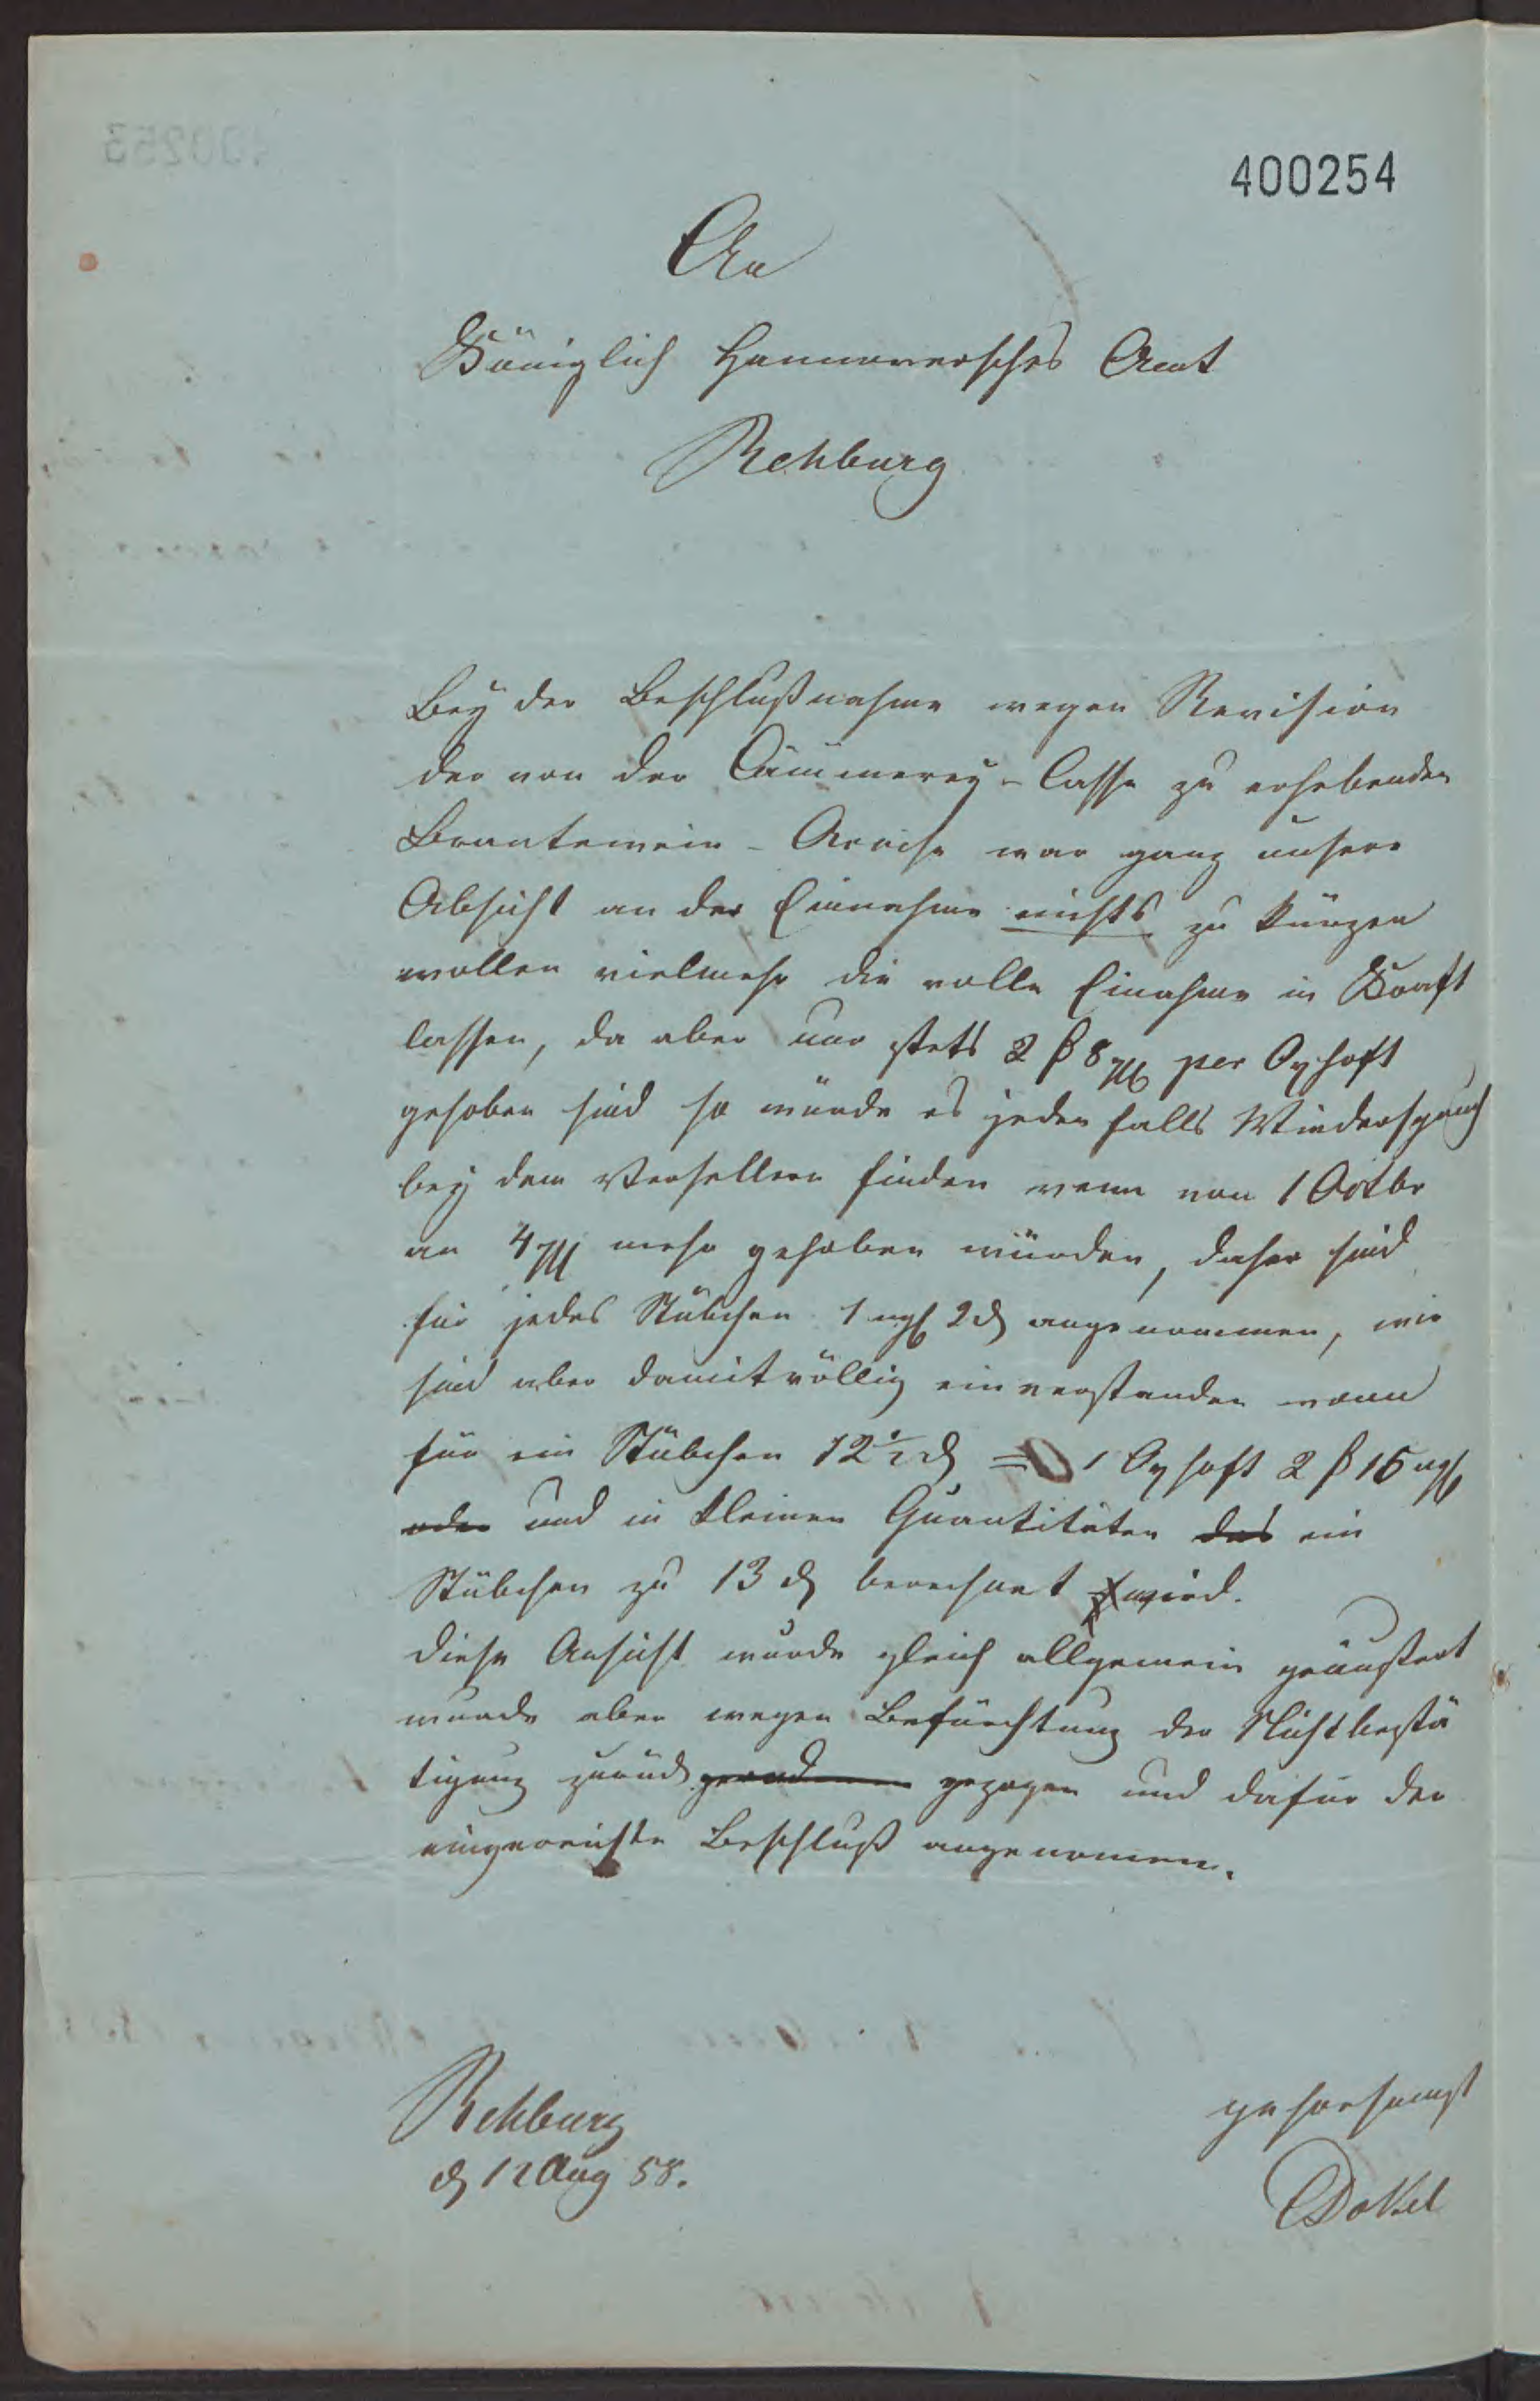 400254
An
Königlich Hannoversches Amt
Rehburg
Bey der Beschlußnahme wegen Revision
der von der Cämmerey-Casse zu erhebenden
Brantewein-Accise war ganz unsere
Absicht an der Einnahme nichts zu kürzen
wollen vielmehr die volle Einahme in Kraft
lassen, da aber nur stets 2 ß 8 per Oxhoft
gehoben sind so würde es jeden falls Wiederspruch
bey dem Versellern finden wenn von 1 Octbr
an 4 mehr gehoben würden, daher sind
für jedes Stübchen 1 ngl 2 d angenommen, wir
sind aber damit völlig einverstanden wenn
für ein Stübchen 12½ d = 1 Oxhoft 2 ß 15 ngl
oder und in kleinen Quantitäten das ein
Stübchen zu 13 d berechnet wird.
Diese Ansicht wurde gleich allgemein geäußert
wurde aber wegen Befürchtung der Nichtbestä
tigung zurück gezogen und dafür der
eingereichte Beschluß angenomen.
Rehburg
d 12 Aug 58.
gehorsamst
Dökel